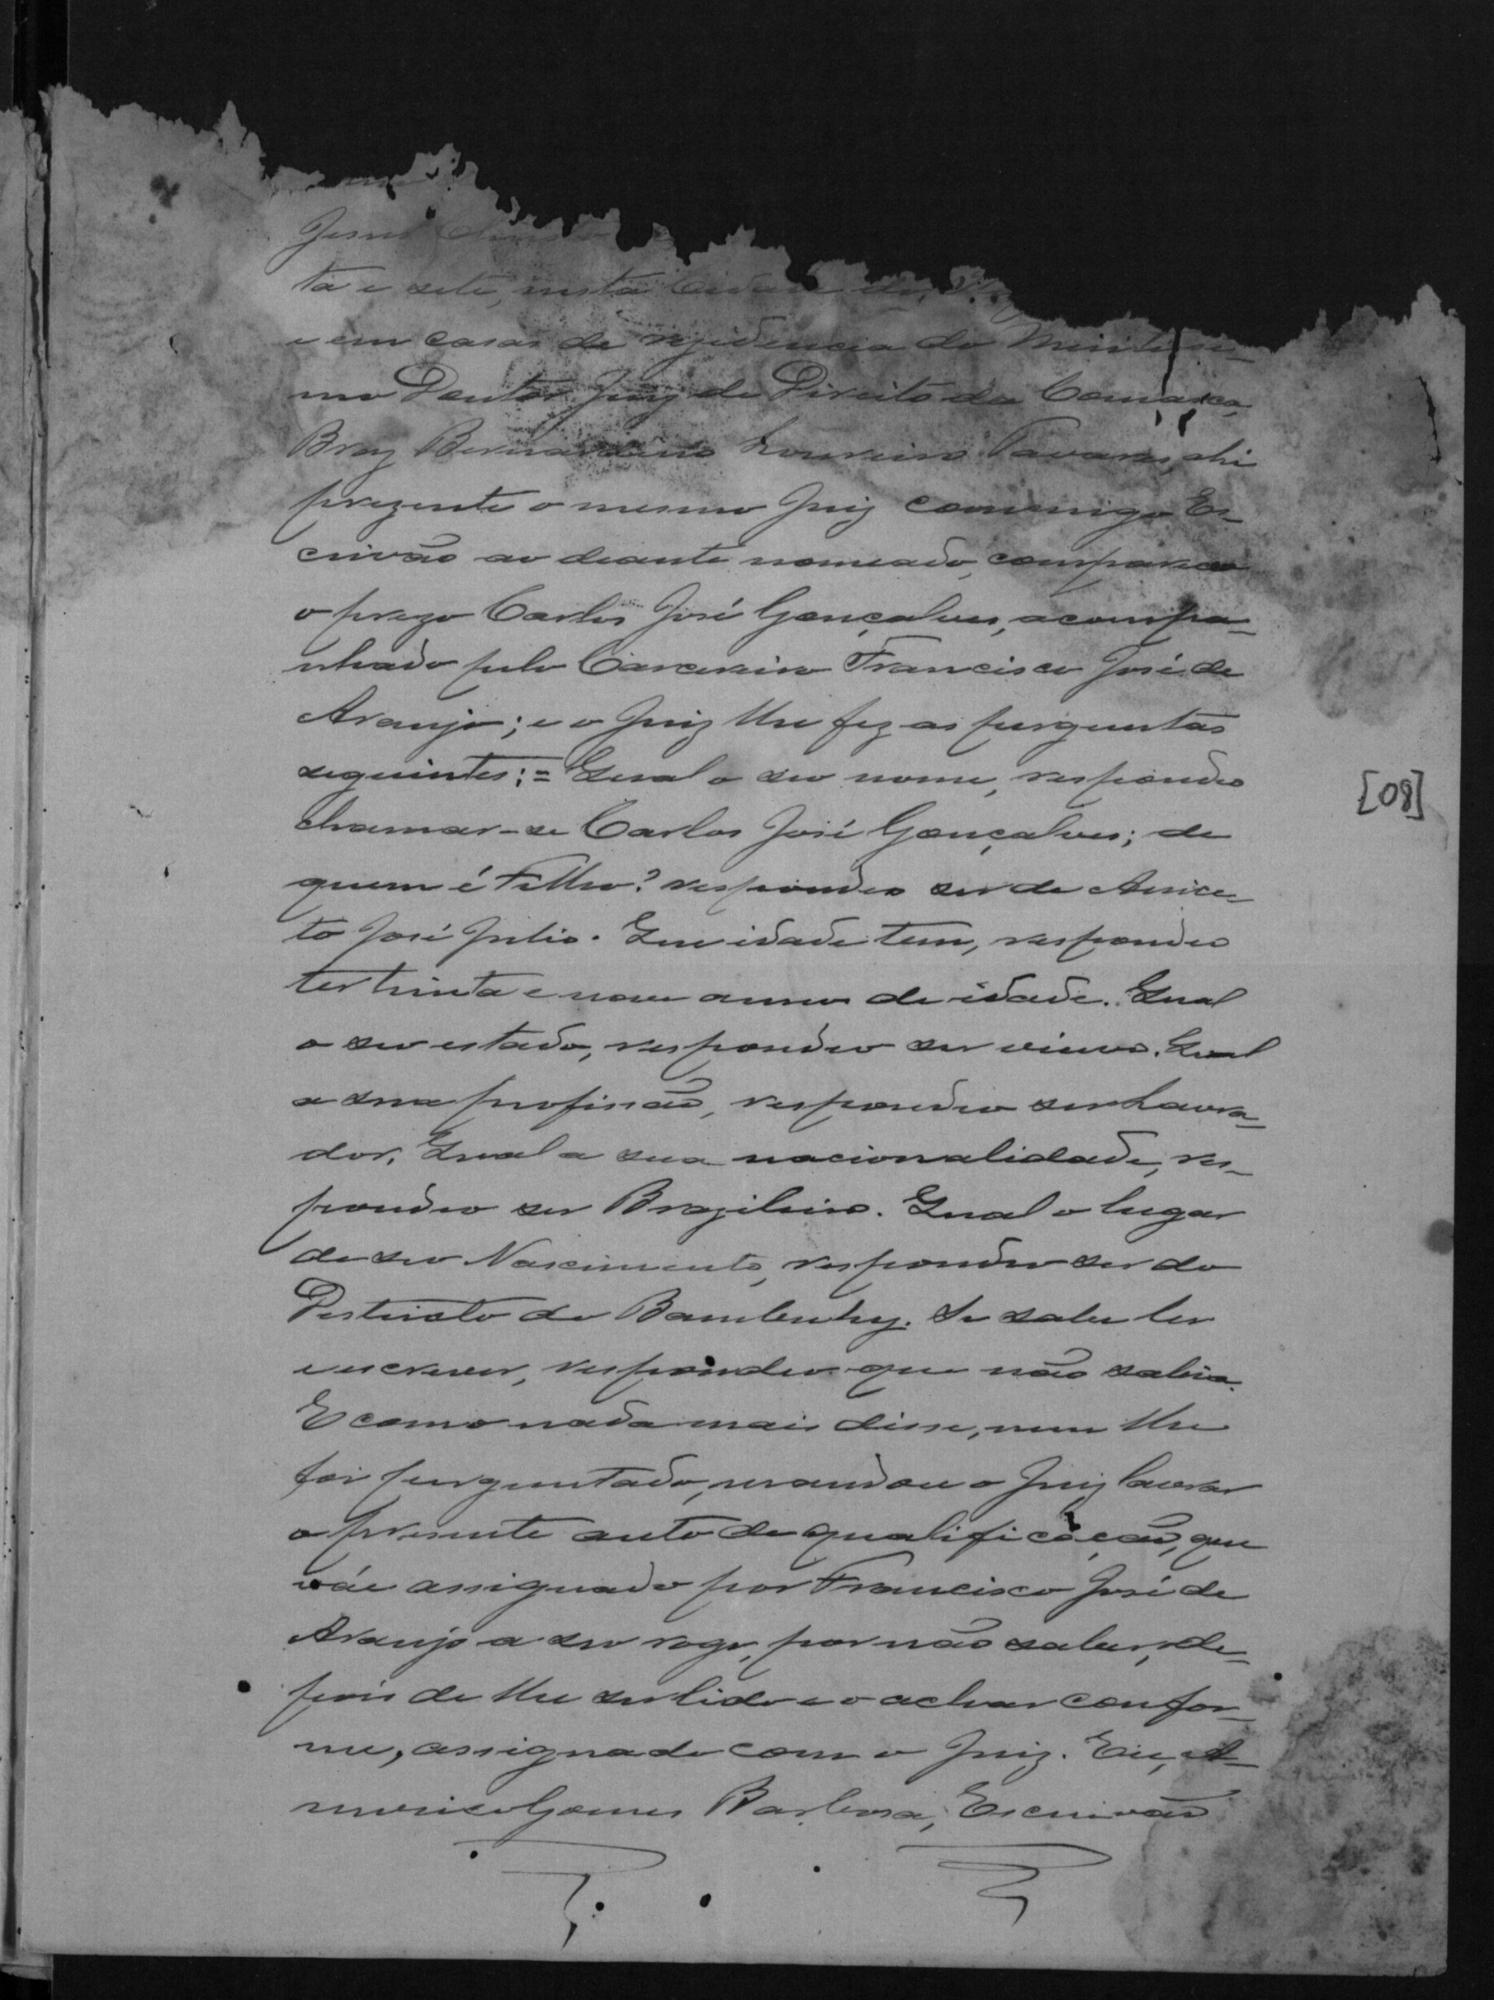 Jesus Christo
ta e sete, nesta Cidade de
e em casas de rezidencia do Meritissi-
mo Doutor Juiz de Direito da Comarca,
Braz Bernardino Loureiro Tavares, ahi
prezente o mesmo Juiz commigo Es-
crivão ao deante nomeado, compareceo
o prezo Carlos José Gonçalves, acompa-
nhado pelo Carcereiro Francisco José de
Araujo; e o Juiz lhe fez as perguntas
seguintes:= Qual o seo nome, respondeo
chamar-se Carlos José Gonçalves; de
quem é Filho? respondeo ser de Anice-
to José Julio. Que idade tem, respondeo
ter trinta e nove annos de idade. Qual
o seo estado, respondeo ser viuvo. Qual
a sua profissão, respondeo ser Lavra-
dor. Qual a sua nacionalidade, res-
pondeo ser Brazileiro. Qual o lugar
de seo Nascimento, respondeo ser do
Destricto do Bambuhy. Se sabe ler
e escrever, respondeo que não sabia.
E como nada mais disse, nem lhe
foi perguntado, mandou o Juiz lavrar
o presente auto de qualificação, que
váe assignado por Francisco José de
Araujo a seo rogo, por não saber, de-
pois de lhe ser lido e o achar confor-
me, assignado com o Juiz. Eu, A-
merico Gomes Barbosa, Escrivão
[08]